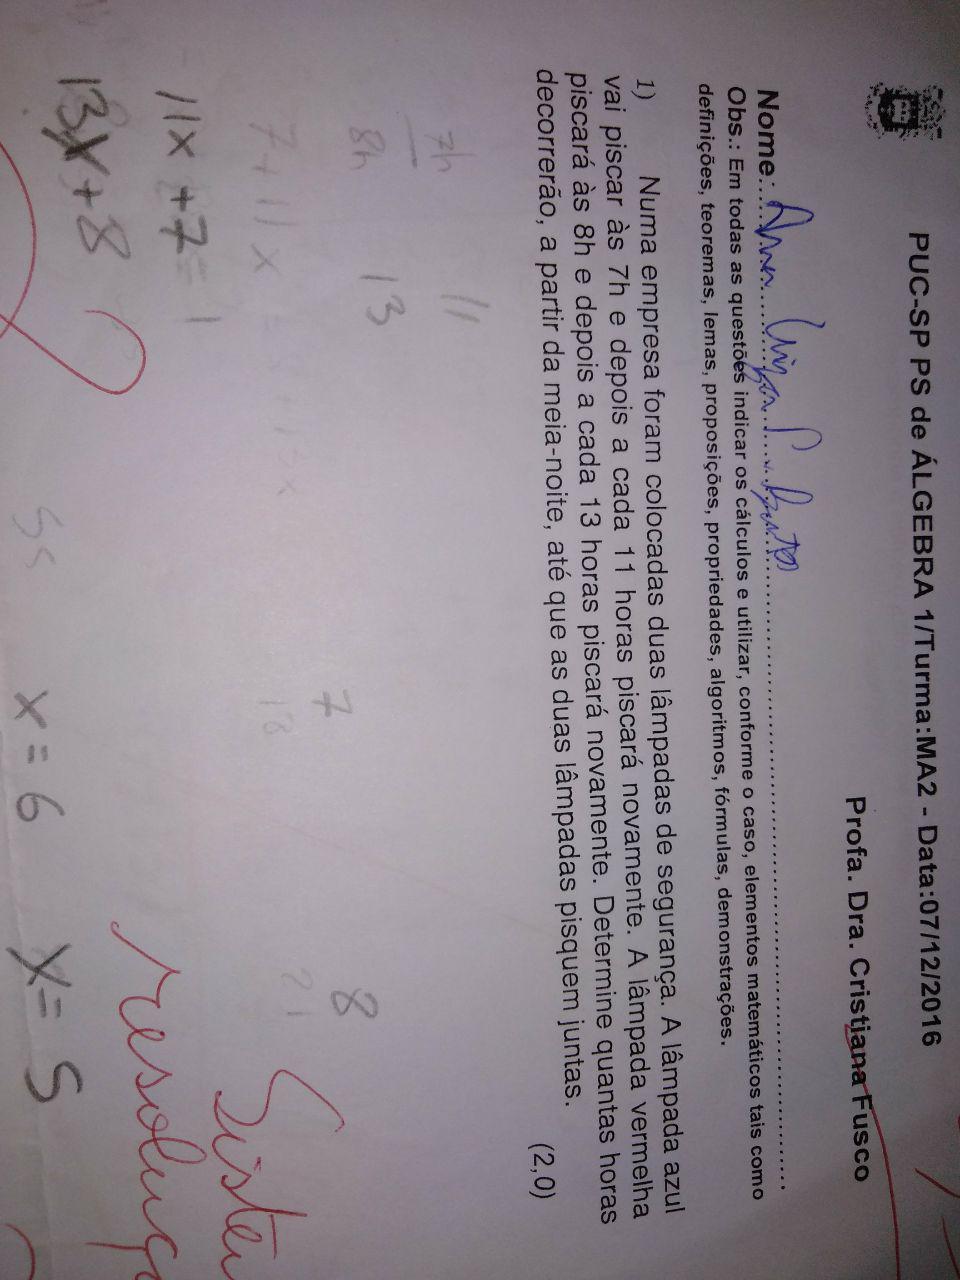 PUC-SP PS de ÁLGEBRA 1/Turma:MA2 - Data:07/12/2016
Profa. Dra. Cristiana Fusco
Nome:
Obs.: Em todas as questões indicar os cálculos e utilizar, conforme o caso, elementos matemáticos tais como
definições, teoremas, lemas, proposições, propriedades, algoritmos, fórmulas, demonstrações.
1) Numa empresa foram colocadas duas lâmpadas de segurança. A lâmpada azul
vai piscar às 7h e depois a cada 11 horas piscará novamente. A lâmpada vermelha
piscará às 8h e depois a cada 13 horas piscará novamente. Determine quantas horas
decorrerão, a partir da meia-noite, até que as duas lâmpadas pisquem juntas.
(2,0)
7h 11
8h 13
7 8
18 21
7+11x
11x+7
13x+8
x=6 x=5